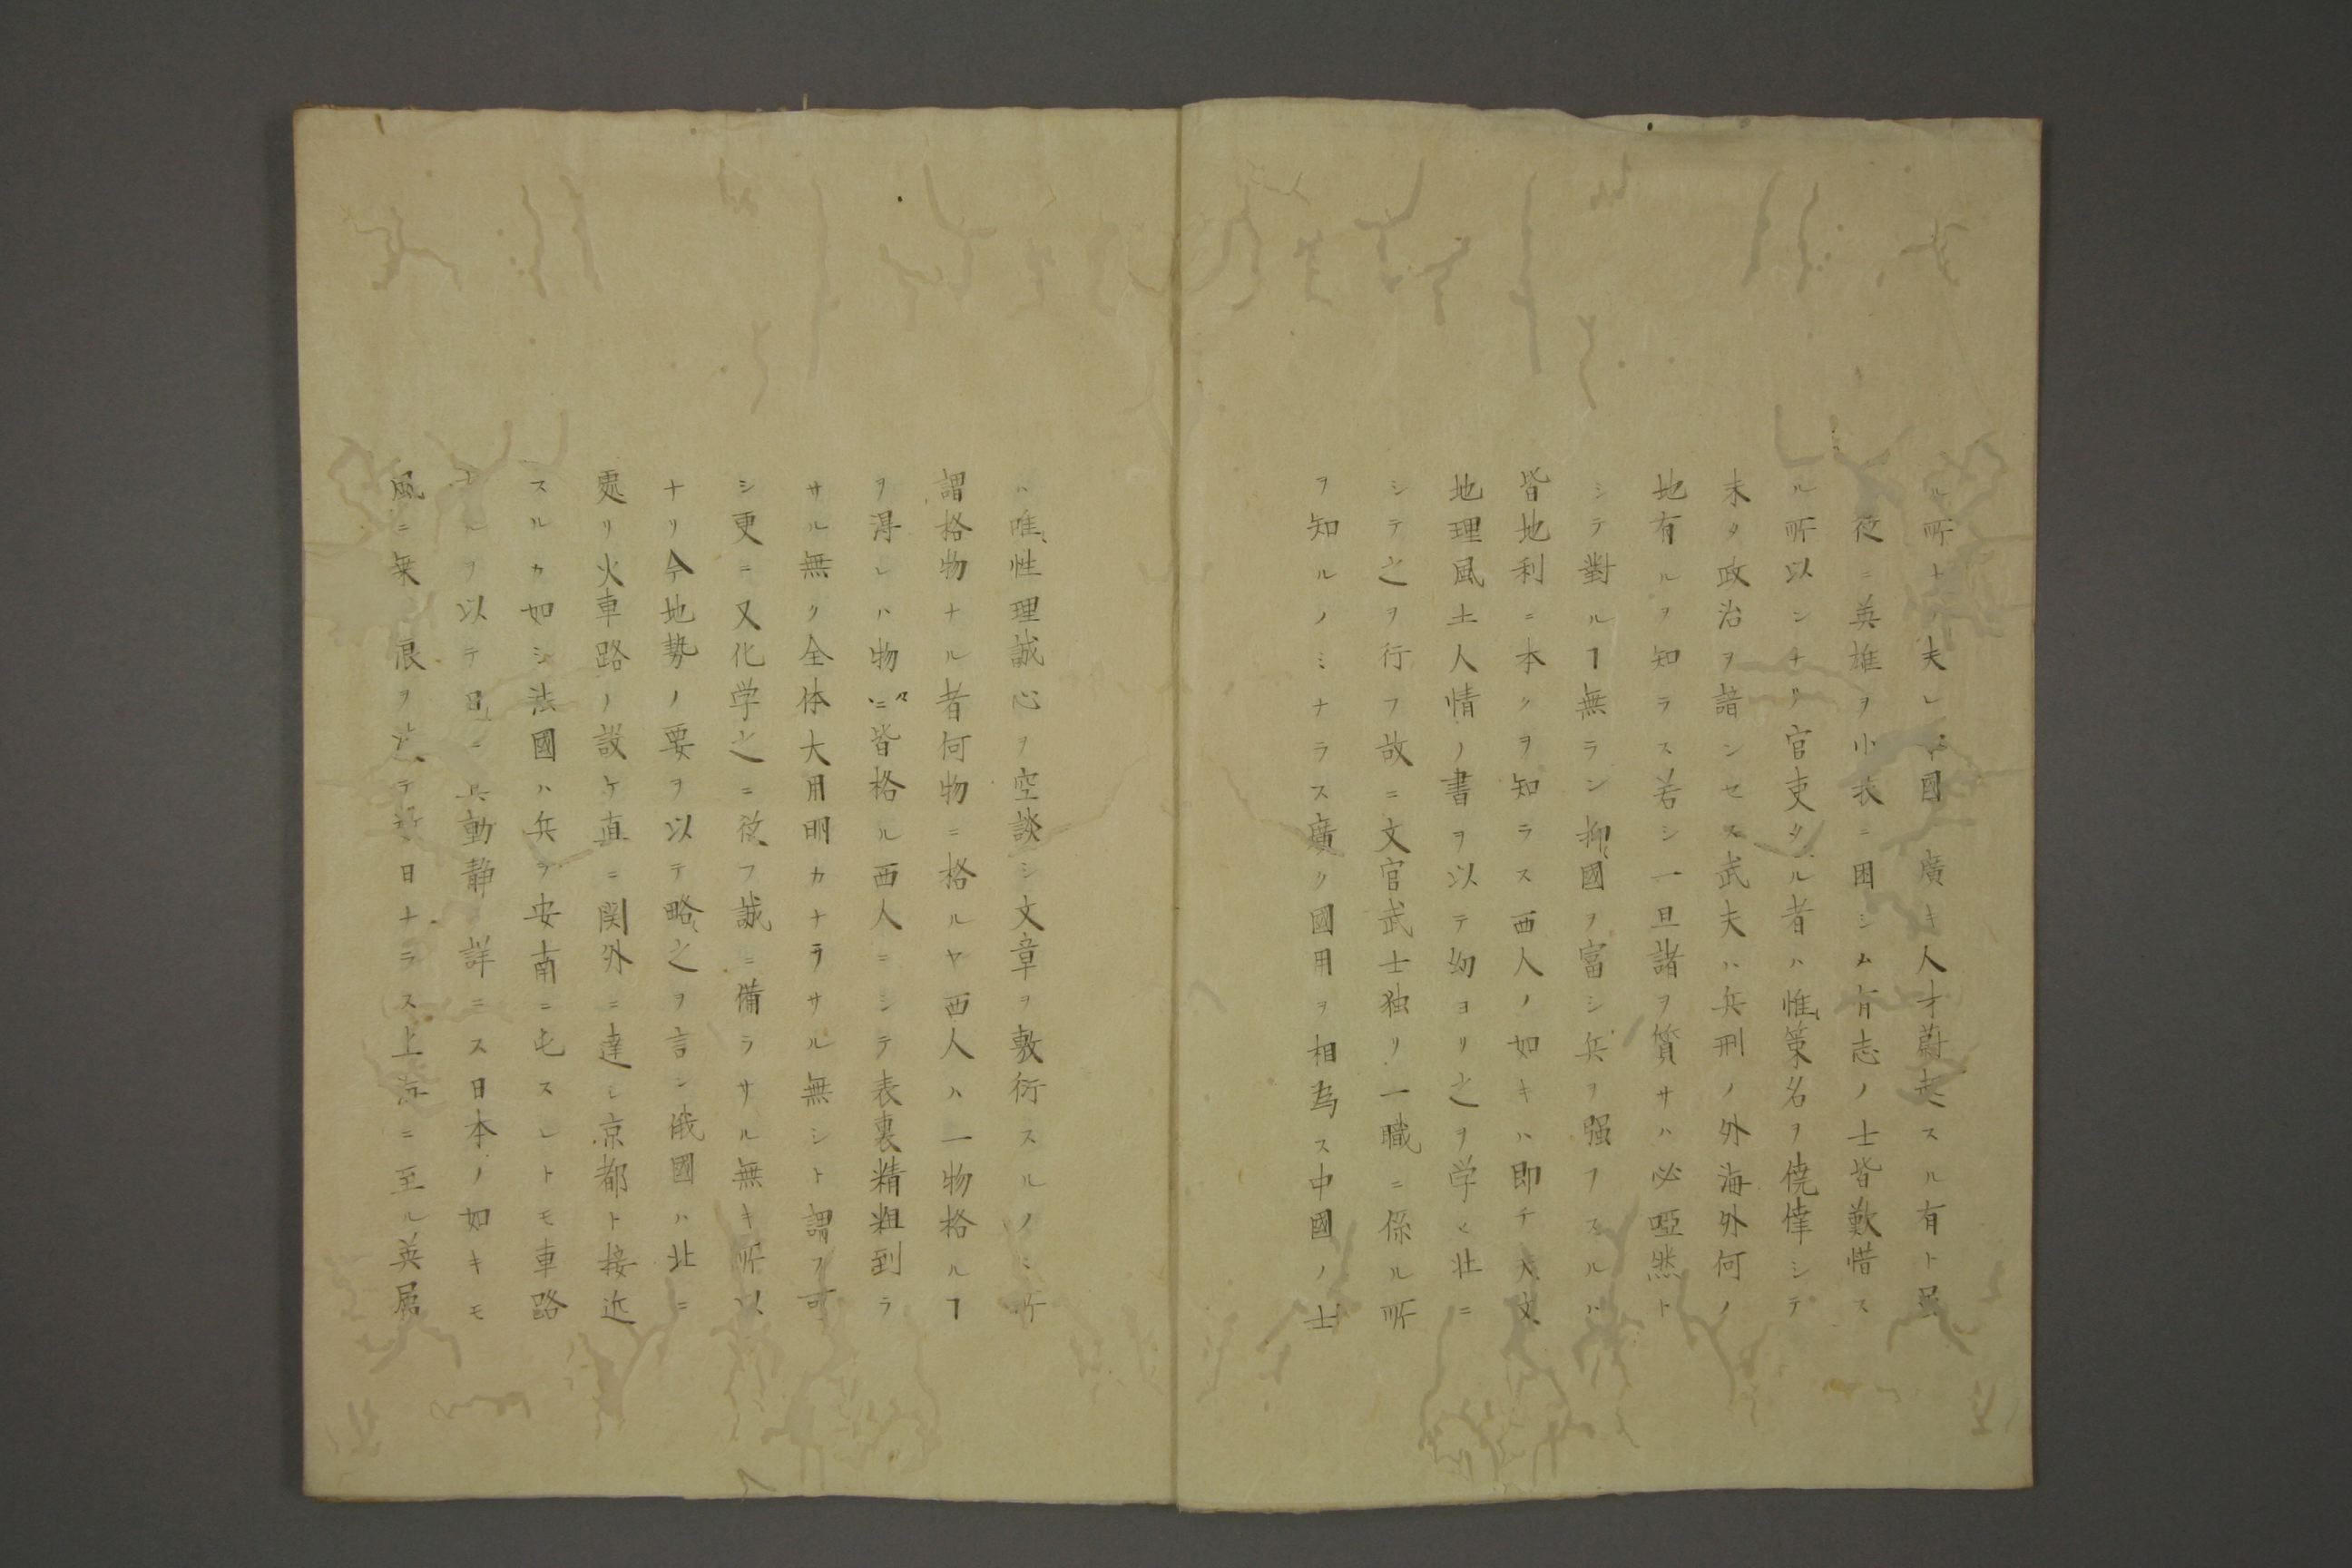 ル所ト夫レ中國ノ廣キ人才蔚起スル有ト虽
徒ニ英雄ヲ小衣ニ困シム有志ノ士皆歎惜ス
ル所以ンナリ官吏タル者ハ惟策名ヲ僥倖シテ
未タ政治ヲ諳ンセス武夫ハ兵刑ノ外海外何ノ
地有ルヲ知ラス若シ一旦諸ヲ質サハ必啞然ト
シテ對ルヿ無ラン抑國ヲ富シ兵ヲ强フスルハ
皆地利ニ本クヲ知ラス西人ノ如キハ即チ天文
地理風土人情ノ書ヲ以テ幼ヨリ之ヲ学ヒ壮ニ
シテ之ヲ行フ故ニ文官武士独リ一職ニ係ル所
ヲ知ルノミナラス廣ク國用ヲ相為ス中國ノ士
ハ唯性理誠心ヲ空談シ文章ヲ敷衍スルノミ所
謂格物ナル者何物ニ格ルヤ西人ハ一物格ルヿ
ヲ得レハ物々ニ皆格ル西人ニシテ表裏精粗到ラ
サル無ク全体大用明カナラサル無シト謂フ可
シ更ニ又化学之ニ従フ誠ニ備ラサル無キ所以
ナリ今地勢ノ要ヲ以テ略之ヲ言ン俄國ハ北ニ
處リ火車路ノ設ケ直ニ関外ニ達シ京都ト接近
スルカ如シ法國ハ兵ヲ安南ニ屯スレトモ車路
ナルヲ以テ日ニ其動静ヲ詳ニス日本ノ如キモ
風ニ乗シ浪ヲ テ 日ナラス上海ニ至ル英属